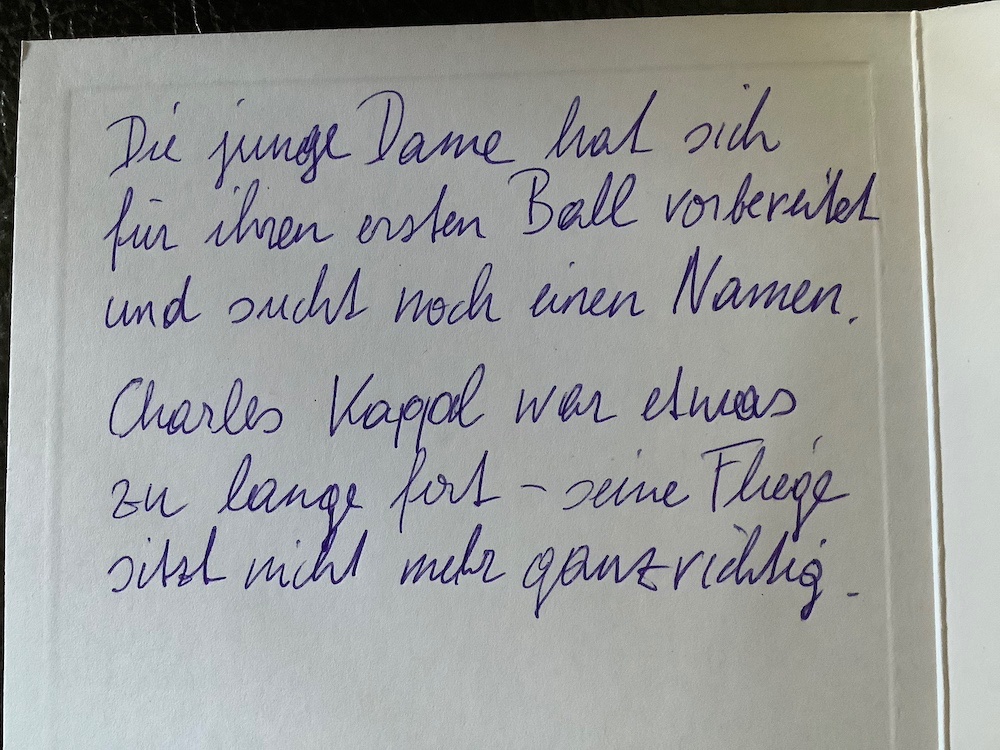 Die junge Dame hat sich
für ihren ersten Ball vorbereitet
und sucht noch einen Namen.
Charles Kappal war etwas
zu lange fort – seine Fliege
sitzt nicht mehr ganz richtig.